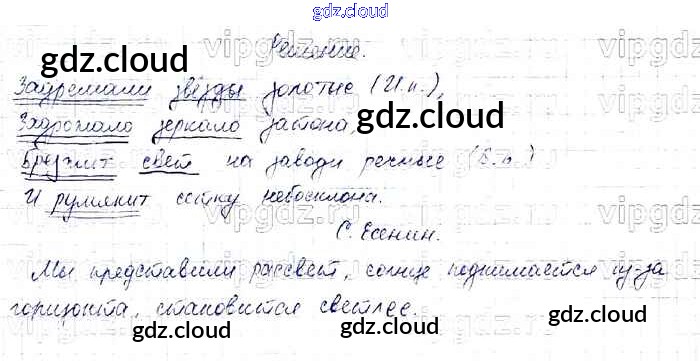 gdz.cloud
Решение.
gdz.cloud
Задремали звёзды золотые (И.п.),
Задрожало зеркало затона,
gdz.cloud
Брезжит свет на заводи речные (В.п.)
И румянит сетку небосклона.
С. Есенин.
Мы представили рассвет, солнце поднимается из-за
горизонта, становится светлее.
gdz.cloud
gdz.cloud
gdz.cloud